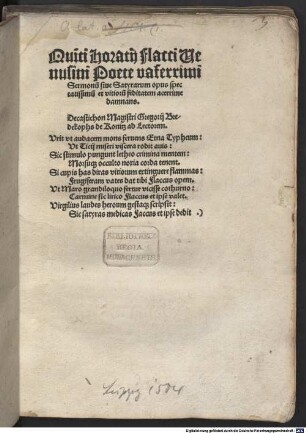 Quiti Horatij Flacci Ve
nusini Poete vaferrimi
Sermonũ siue Satyrarum opus spec
tatissimũ et vitiorũ feditatem acerrime
damnans.
Decastichon Magistri Gregorij
de Konitz ad Lectorem.
Urit vt audacem mons feruens Etna Typheum:
Ut Ticij miseri viscera rodit auis:
Sic stimulo pungunt letheo crimina mentem:
Morsuqz occulto noxia corda tenent.
Si cupis has diras vitiorum extinguere flammas:
Frugiferam vates dat tibi Flaccus opem.
Ut Maro grandiloquo fertur vicisse cothurno:
Carmine sic lirico Flaccus et ipse valet.
Virgilius laudes heroum gestaqz scripsit:
Sic satyras medicas Flaccus et ipse dedit .)
BIBLIOTHECA
REGIA
MONACENSIS
Leipzig 1504